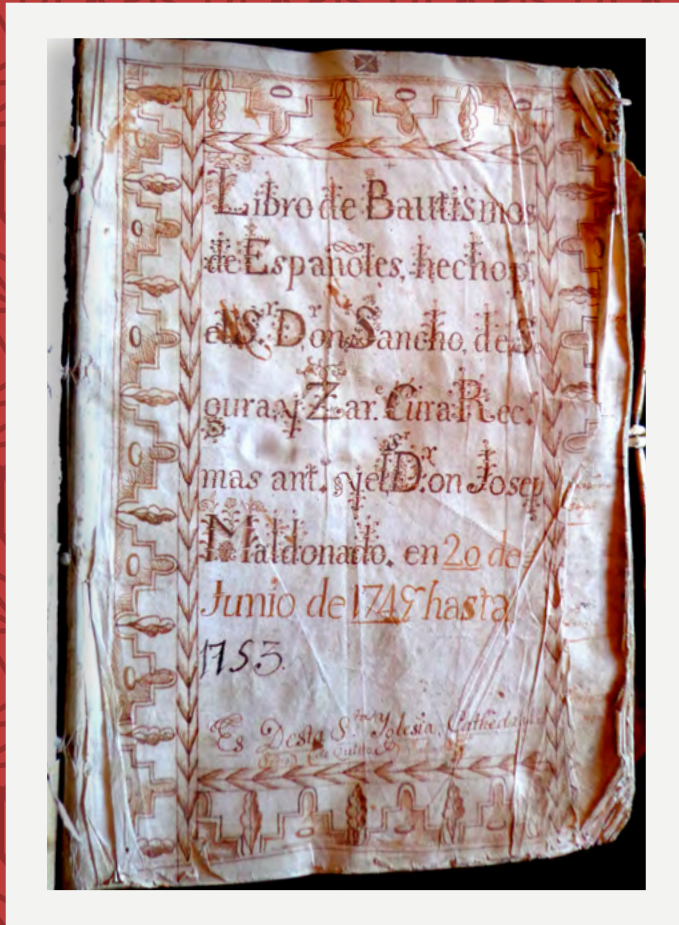 Libro de Bautismos
de Españoles, hecho p.r
el S.r D.r on Sancho, de S.
gura, y Zar. Cura Rec.
mas ant.º, y el D.r on Josep
Maldonado. en 20 de
Junio de 1747 hasta
1753.
Es Desta S.ta Yglesia, Cathedral
de Quito